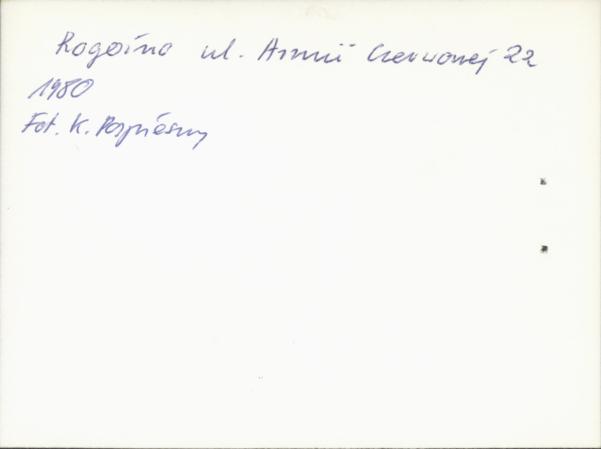 Rogoźno ul. Armii Czerwonej 22
1980
Fot. K. Pospieszny